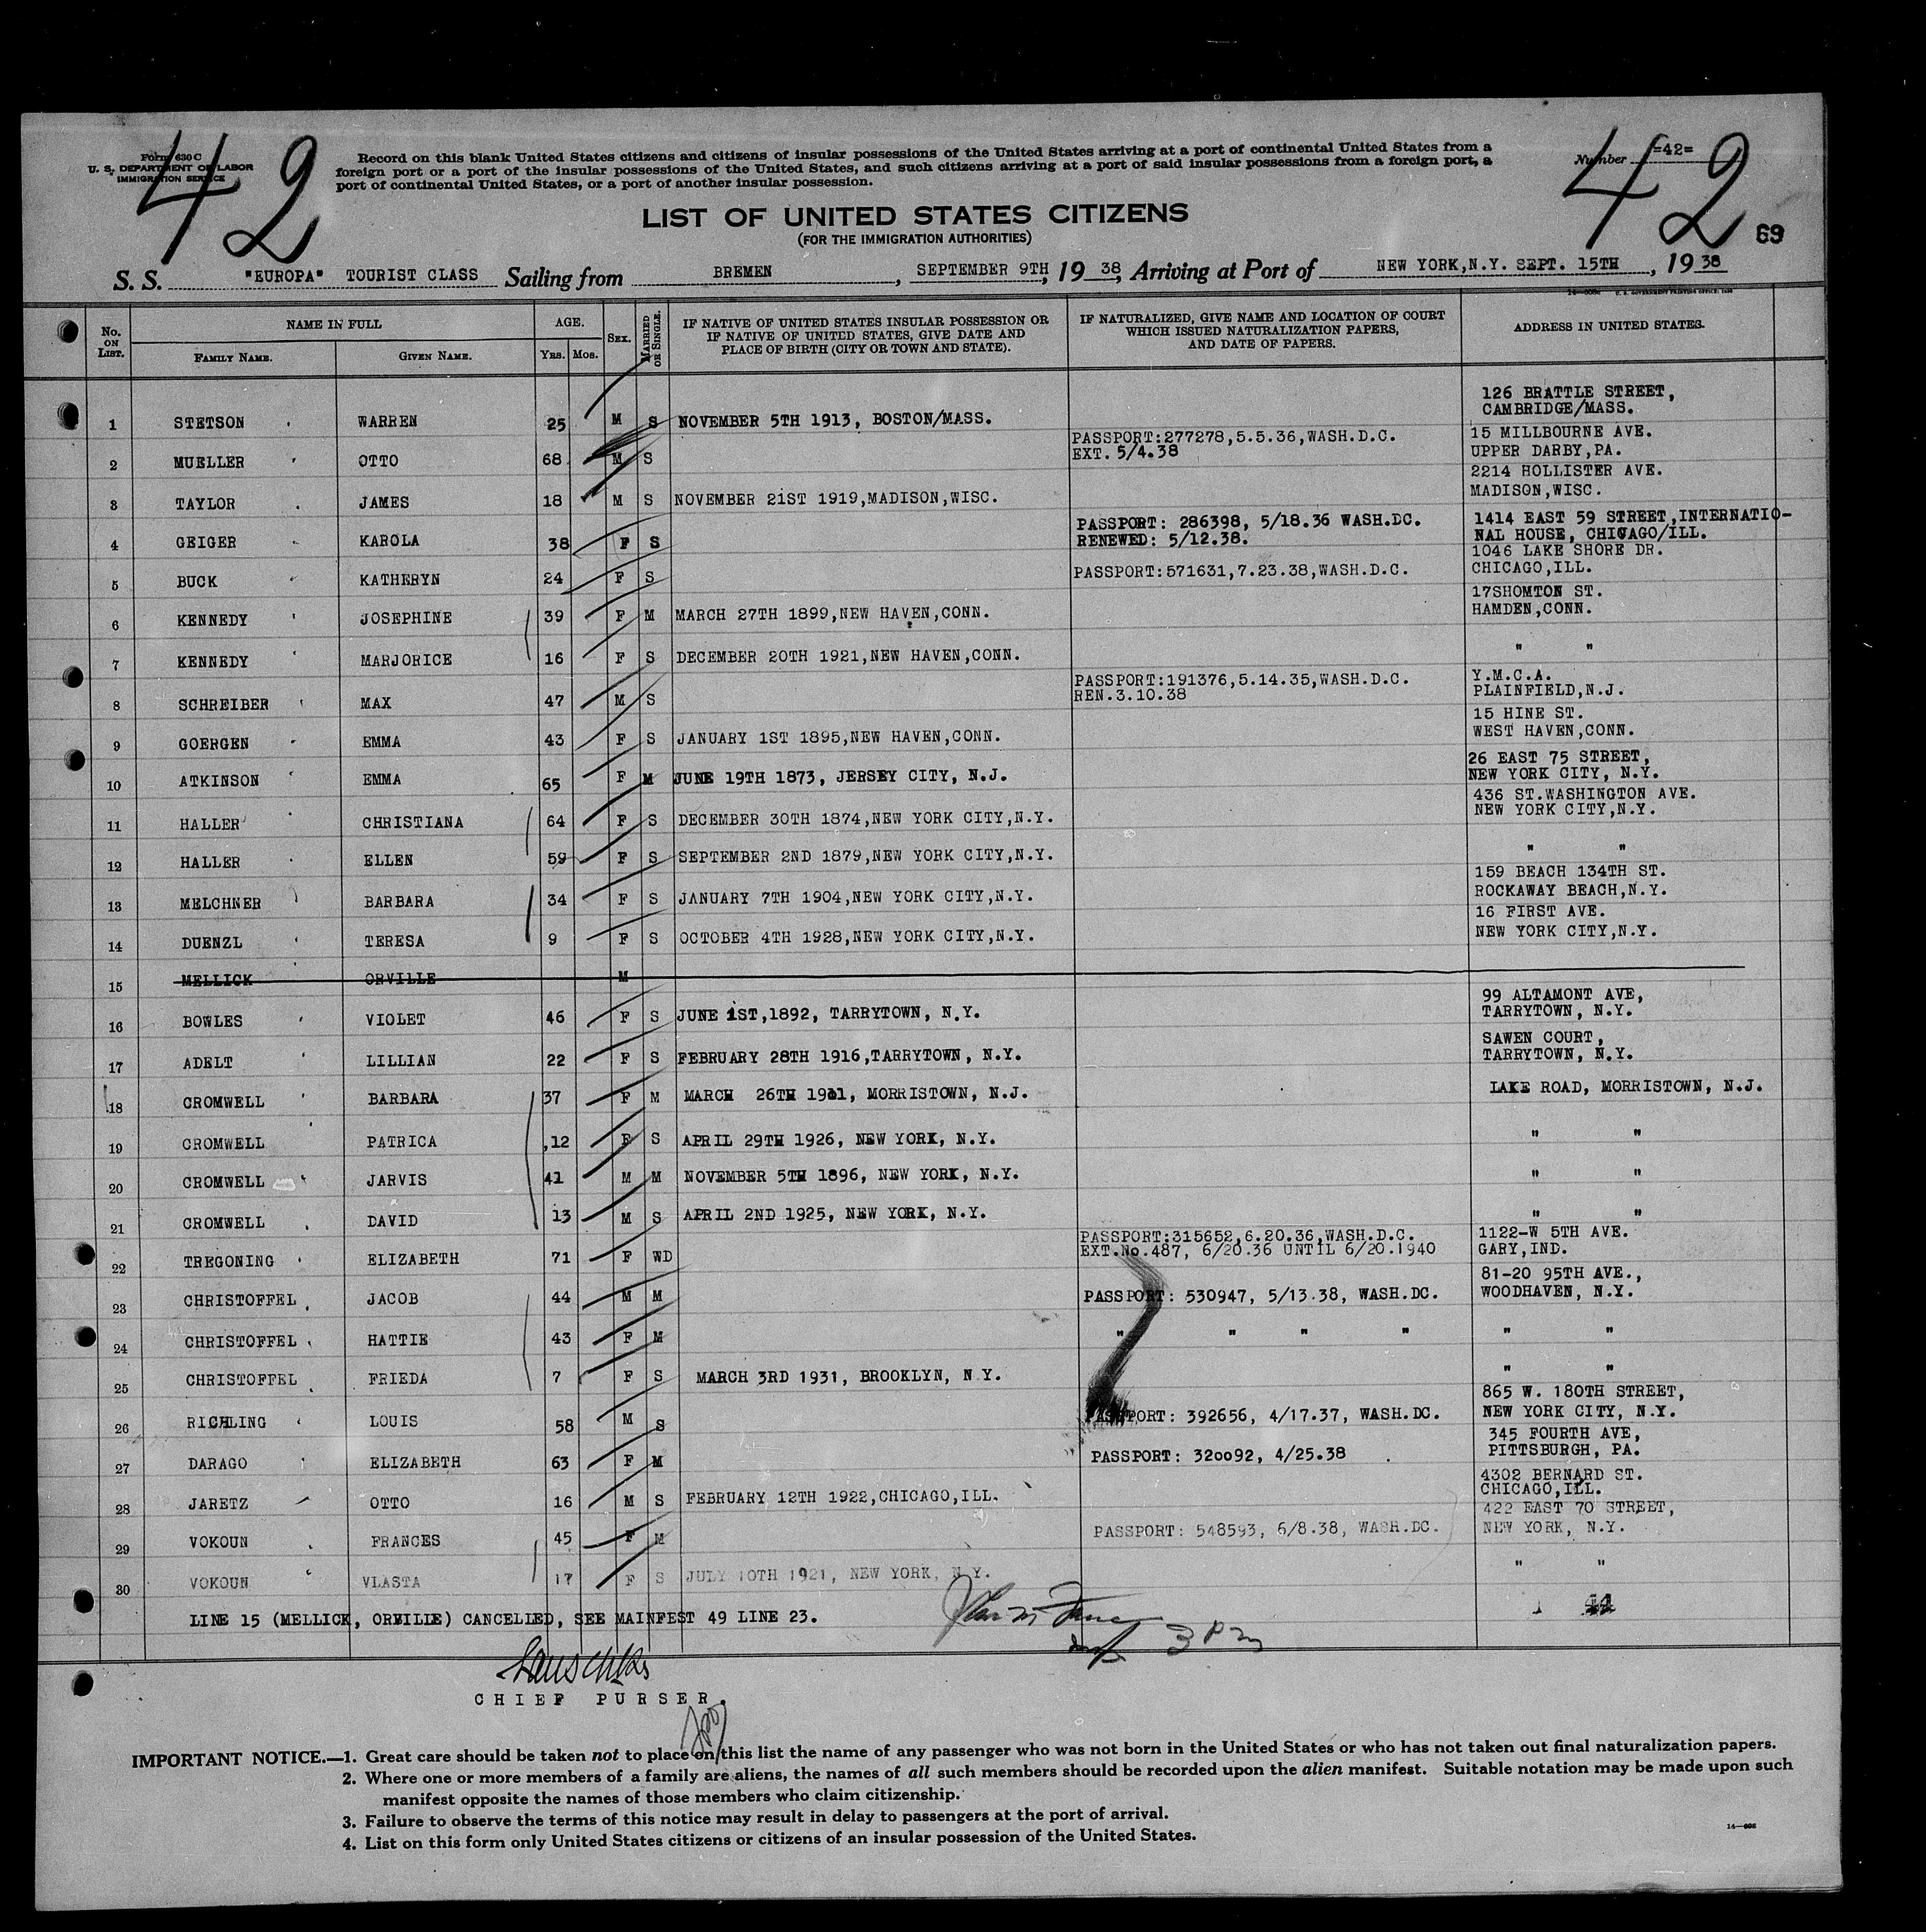 42 42
Form 630 C
U. S. DEPARTMENT OF LABOR
IMMIGRATION SERVICE
Record on this blank United States citizens and citizens of insular possessions of the United States arriving at a port of continental United States from a
foreign port or a port of the insular possessions of the United States, and such citizens arriving at a port of said insular possessions from a foreign port, a
port of continental United States, or a port of another insular possession.
Number =42=
LIST OF UNITED STATES CITIZENS
(FOR THE IMMIGRATION AUTHORITIES)
69
S. S. "EUROPA" TOURIST CLASS Sailing from BREMEN, SEPTEMBER 9TH, 19 38, Arriving at Port of NEW YORK,N.Y. SEPT. 15TH, 19 38
No. ON LIST. NAME IN FULL FAMILY NAME. GIVEN NAME. AGE. YRS. MOS. SEX. MARRIED OR SINGLE.
IF NATIVE OF UNITED STATES INSULAR POSSESSION OR
IF NATIVE OF UNITED STATES, GIVE DATE AND
PLACE OF BIRTH (CITY OR TOWN AND STATE).
IF NATURALIZED, GIVE NAME AND LOCATION OF COURT
WHICH ISSUED NATURALIZATION PAPERS,
AND DATE OF PAPERS.
ADDRESS IN UNITED STATES.
126 BRATTLE STREET,
CAMBRIDGE/MASS.
1 STETSON WARREN 25 M S NOVEMBER 5TH 1913, BOSTON/MASS.
PASSPORT:277278,5.5.36,WASH.D.C. 15 MILLBOURNE AVE.
2 MUELLER OTTO 68 M S EXT. 5/4.38 UPPER DARBY,PA.
2214 HOLLISTER AVE.
3 TAYLOR JAMES 18 M S NOVEMBER 21ST 1919,MADISON,WISC. MADISON,WISC.
PASSPORT: 286398, 5/18.36 WASH.DC. 1414 EAST 59 STREET,INTERNATIO-
4 GEIGER KAROLA 38 F S RENEWED: 5/12.38. NAL HOUSE, CHICAGO/ILL.
1046 LAKE SHORE DR.
5 BUCK KATHERYN 24 F S PASSPORT:571631,7.23.38,WASH.D.C. CHICAGO,ILL.
17SHOMTON ST.
6 KENNEDY JOSEPHINE 39 F M MARCH 27TH 1899,NEW HAVEN,CONN. HAMDEN,CONN.
7 KENNEDY MARJORICE 16 F S DECEMBER 20TH 1921,NEW HAVEN,CONN. " "
PASSPORT:191376,5.14.35,WASH.D.C. Y.M.C.A.
8 SCHREIBER MAX 47 M S REN.3.10.38 PLAINFIELD,N.J.
15 HINE ST.
9 GOERGEN EMMA 43 F S JANUARY 1ST 1895,NEW HAVEN,CONN. WEST HAVEN,CONN.
26 EAST 75 STREET,
10 ATKINSON EMMA 65 F M JUNE 19TH 1873, JERSEY CITY, N.J. NEW YORK CITY, N.Y.
436 ST.WASHINGTON AVE.
11 HALLER CHRISTIANA 64 F S DECEMBER 30TH 1874,NEW YORK CITY,N.Y. NEW YORK CITY,N.Y.
12 HALLER ELLEN 59 F S SEPTEMBER 2ND 1879,NEW YORK CITY,N.Y. " "
159 BEACH 134TH ST.
13 MELCHNER BARBARA 34 F S JANUARY 7TH 1904,NEW YORK CITY,N.Y. ROCKAWAY BEACH,N.Y.
16 FIRST AVE.
14 DUENZL TERESA 9 F S OCTOBER 4TH 1928,NEW YORK CITY,N.Y. NEW YORK CITY,N.Y.
15 MELLICK ORVILLE M
99 ALTAMONT AVE,
16 BOWLES VIOLET 46 F S JUNE 1ST,1892, TARRYTOWN, N.Y. TARRYTOWN, N.Y.
SAWEN COURT,
17 ADELT LILLIAN 22 F S FEBRUARY 28TH 1916,TARRYTOWN, N.Y. TARRYTOWN, N.Y.
18 CROMWELL BARBARA 37 F M MARCH 26TH 1901, MORRISTOWN, N.J. LAKE ROAD, MORRISTOWN, N.J.
19 CROMWELL PATRICA 12 F S APRIL 29TH 1926, NEW YORK, N.Y. " "
20 CROMWELL JARVIS 41 M M NOVEMBER 5TH 1896, NEW YORK, N.Y. " "
21 CROMWELL DAVID 13 M S APRIL 2ND 1925, NEW YORK, N.Y. " "
PASSPORT:315652,6.20.36,WASH.D.C. 1122-W 5TH AVE.
22 TREGONING ELIZABETH 71 F WD EXT.No.487, 6/20.36 UNTIL 6/20.1940 GARY,IND.
81-20 95TH AVE.,
23 CHRISTOFFEL JACOB 44 M M PASSPORT: 530947, 5/13.38, WASH.DC. WOODHAVEN, N.Y.
24 CHRISTOFFEL HATTIE 43 F M " " " " " "
25 CHRISTOFFEL FRIEDA 7 F S MARCH 3RD 1931, BROOKLYN, N Y. " "
865 W. 180TH STREET,
26 RICHLING LOUIS 58 M S PASSPORT: 392656, 4/17.37, WASH.DC. NEW YORK CITY, N.Y.
345 FOURTH AVE,
27 DARAGO ELIZABETH 63 F M PASSPORT: 320092, 4/25.38 PITTSBURGH, PA.
4302 BERNARD ST.
28 JARETZ OTTO 16 M S FEBRUARY 12TH 1922,CHICAGO,ILL. CHICAGO,ILL.
422 EAST 70 STREET,
29 VOKOUN FRANCES 45 F M PASSPORT: 548593, 6/8.38, WASH.DC. NEW YORK, N.Y.
30 VOKOUN VLASTA 17 F S JULY 10TH 1921, NEW YORK, N.Y. " "
LINE 15 (MELLICK, ORVILLE) CANCELLED, SEE MAINFEST 49 LINE 23.
3 PM
CHIEF PURSER.
IMPORTANT NOTICE.—1. Great care should be taken not to place on this list the name of any passenger who was not born in the United States or who has not taken out final naturalization papers.
2. Where one or more members of a family are aliens, the names of all such members should be recorded upon the alien manifest. Suitable notation may be made upon such
manifest opposite the names of those members who claim citizenship.
3. Failure to observe the terms of this notice may result in delay to passengers at the port of arrival.
4. List on this form only United States citizens or citizens of an insular possession of the United States.